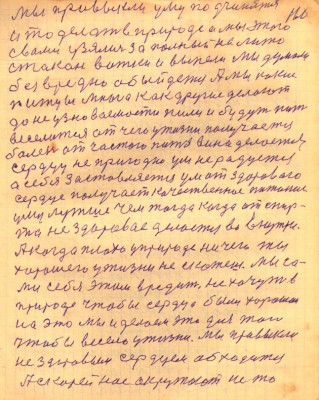 Мы привыкли уму подчинятся 166
и то делать в природе а мы этого
с вами взяли за полный налито
стакан водки и выпели мы думали
безвредно обыйдемся А мы какие
живем много как другие делают
до не узноваемости пили и будут пит
веселится от чего у жизни получается
болен от частого пит вина делается
сердцу не пригодно ум не радуется
а себя заставляется ум от здорового
сердце получает качественное питание
ум лутше чем тогда когда от спир-
та не здоровае делается во внутри.
А когда плохо у природе ничего ты
хорошего у жизни не скажеш. Мы са-
ми себя этим вредит, не хочут в
природе чтобы сердце были хорошии
на это мы и делаем это для того
чтобы весело у жизни. Мы привыкли
не здоровым сердцем обходится
А скорей нас окружают не то